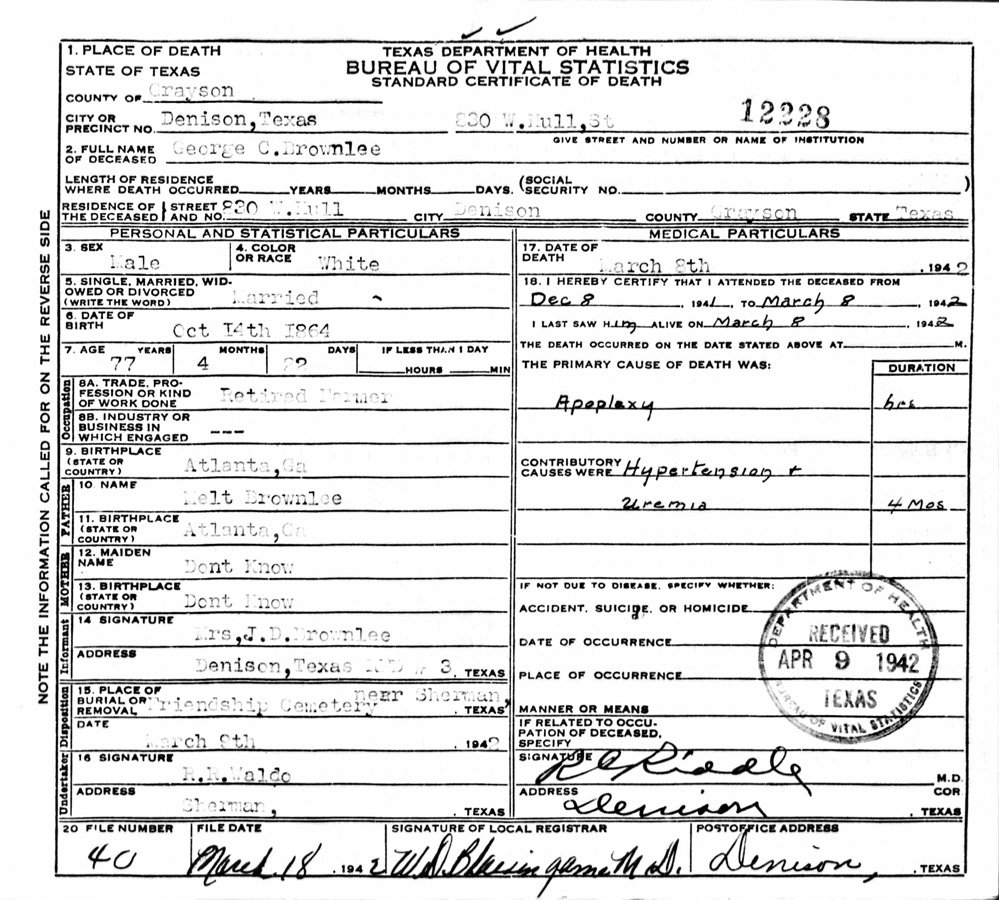 1. PLACE OF DEATH
STATE OF TEXAS
COUNTY OF Grayson
TEXAS DEPARTMENT OF HEALTH
BUREAU OF VITAL STATISTICS
STANDARD CERTIFICATE OF DEATH
CITY OR PRECINCT NO. Denison,Texas 830 W.Hull,St 12228
GIVE STREET AND NUMBER OR NAME OF INSTITUTION
2. FULL NAME OF DECEASED George C.Brownlee
LENGTH OF RESIDENCE WHERE DEATH OCCURRED YEARS MONTHS DAYS. (SOCIAL SECURITY NO. )
RESIDENCE OF THE DECEASED STREET AND NO. 830 W.Hull CITY Denison COUNTY Grayson STATE Texas
PERSONAL AND STATISTICAL PARTICULARS
3. SEX Male
4. COLOR OR RACE White
5. SINGLE, MARRIED, WIDOWED OR DIVORCED (WRITE THE WORD) Married
6. DATE OF BIRTH Oct 14th 1864
7. AGE YEARS 77 MONTHS 4 DAYS 22 IF LESS THAN 1 DAY HOURS MIN
Occupation
8A. TRADE, PROFESSION OR KIND OF WORK DONE Retired Farmer
8B. INDUSTRY OR BUSINESS IN WHICH ENGAGED ---
9. BIRTHPLACE (STATE OR COUNTRY) Atlanta,Ga
FATHER
10 NAME Melt Brownlee
11. BIRTHPLACE (STATE OR COUNTRY) Atlanta,Ga
MOTHER
12. MAIDEN NAME Dont Know
13. BIRTHPLACE (STATE OR COUNTRY) Dont Know
Informant
14 SIGNATURE Mrs,J.D.Brownlee
ADDRESS Denison,Texas # 3 , TEXAS
Disposition
15. PLACE OF BURIAL OR REMOVAL Friendship Cemetery near Sherman, , TEXAS
DATE March 9th , 1942
Undertaker
16 SIGNATURE R.R.Waldo
ADDRESS Sherman, , TEXAS
MEDICAL PARTICULARS
17. DATE OF DEATH March 8th , 1942
18. I HEREBY CERTIFY THAT I ATTENDED THE DECEASED FROM
Dec 8 , 1941, TO March 8 , 1942
I LAST SAW Him ALIVE ON March 8 , 1942
THE DEATH OCCURRED ON THE DATE STATED ABOVE AT M.
THE PRIMARY CAUSE OF DEATH WAS: DURATION
Apoplexy hrs
CONTRIBUTORY CAUSES WERE Hypertension +
Uremia 4 Mos
IF NOT DUE TO DISEASE, SPECIFY WHETHER:
ACCIDENT, SUICIDE, OR HOMICIDE
DATE OF OCCURRENCE
PLACE OF OCCURRENCE
MANNER OR MEANS
IF RELATED TO OCCUPATION OF DECEASED, SPECIFY
SIGNATURE Riddle M.D.
ADDRESS Denison COR. , TEXAS
DEPARTMENT OF HEALTH
RECEIVED
APR 9 1942
TEXAS
BUREAU OF VITAL STATISTICS
20 FILE NUMBER 40
FILE DATE March 18 , 1942
SIGNATURE OF LOCAL REGISTRAR W.D. Blassingame M.D.
POSTOFFICE ADDRESS Denison, , TEXAS
NOTE THE INFORMATION CALLED FOR ON THE REVERSE SIDE